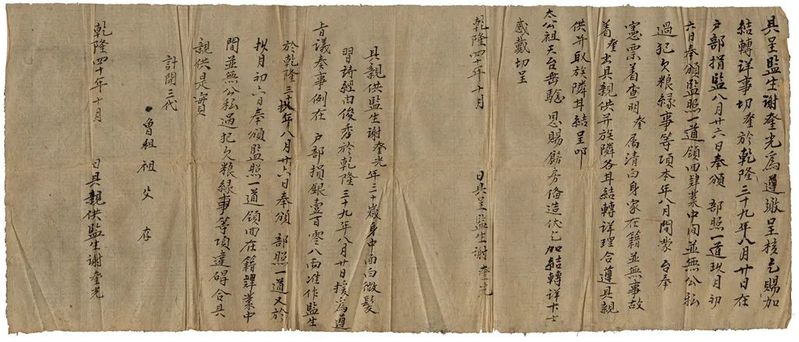 具呈監生謝奎光為遵繳呈核乞賜加
結轉詳事切奎於乾隆三十九年八月廿日在
戶部捐監八月廿六日奉頒 部照一道玖月初
六日奉頒監照一道領回肄業中間並無公私
過犯欠粮緣事等項本年八月間蒙 台奉
憲票着查明奎属清白身家在籍並無事故
着奎出具親供并族隣各耳結轉詳理合遵具親
供并取族隣耳結呈叩
太公祖天台 恩賜 房俻造伏乞加結轉詳卞士
感戴切呈
乾隆四十年十月 日具呈監生謝奎光
具親供監生謝奎光年三十歲身中面白微髮
習詩經由俊秀於乾隆三十九年八月廿日援為遵
旨議奏事例在 戶部捐銀壹百零八両准作監生
於乾隆三十玖年八月廿六日奉頒 部照一道又於
玖月初六日奉頒監照一道領回在籍肄業中
間並無公私過犯欠粮緣事等項違碍合具
親供是實
計開三代
曾祖 祖 父 存
乾隆四十年十月 日具親供監生謝奎光